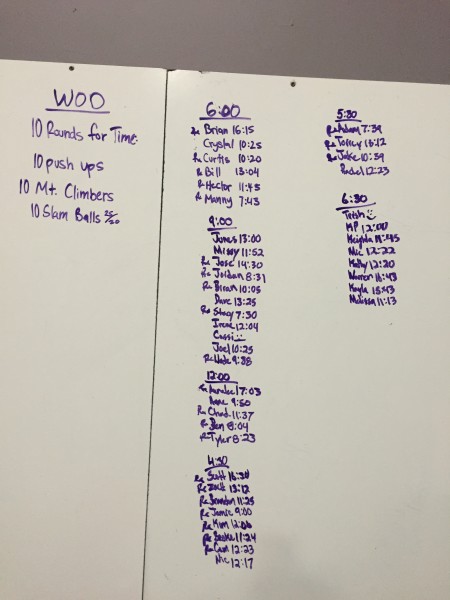 WOD
10 Rounds for Time:
10 push ups
10 Mt. Climbers
10 Slam Balls 25/20
6:00
Rx Brian 16:15
Crystal 10:25
Rx Curtis 10:20
Rx Bill 13:04
Rx Hector 11:45
Rx Manny 7:43
9:00
James 13:00
Missy 11:52
Rx Jose 14:30
Rx Jordan 8:31
Rx Brian 10:05
Dave 13:25
Rx Stacy 7:30
Irene 12:04
Cassi
Joel 10:25
Rx 9:38
12:00
Rx 17:03
Anne 9:50
Rx Chad 11:37
Rx Ben 8:04
Rx Tyler 8:23
4:30
Rx Scott 16:30
Rx Zack 13:12
Rx Brandon 11:25
Rx Jamie 9:00
Rx Kim 12:06
Rx 11:24
Rx Cam 12:23
Nic 12:17
5:30
Rx Adam 7:39
Rx Torrey 13:12
Rx Jake 10:39
12:23
6:30
Trish
MP 12:00
Meighan
Nic 12:22
Kathy 12:20
Warren 11:43
Kayla 13:43
Melissa 11:13